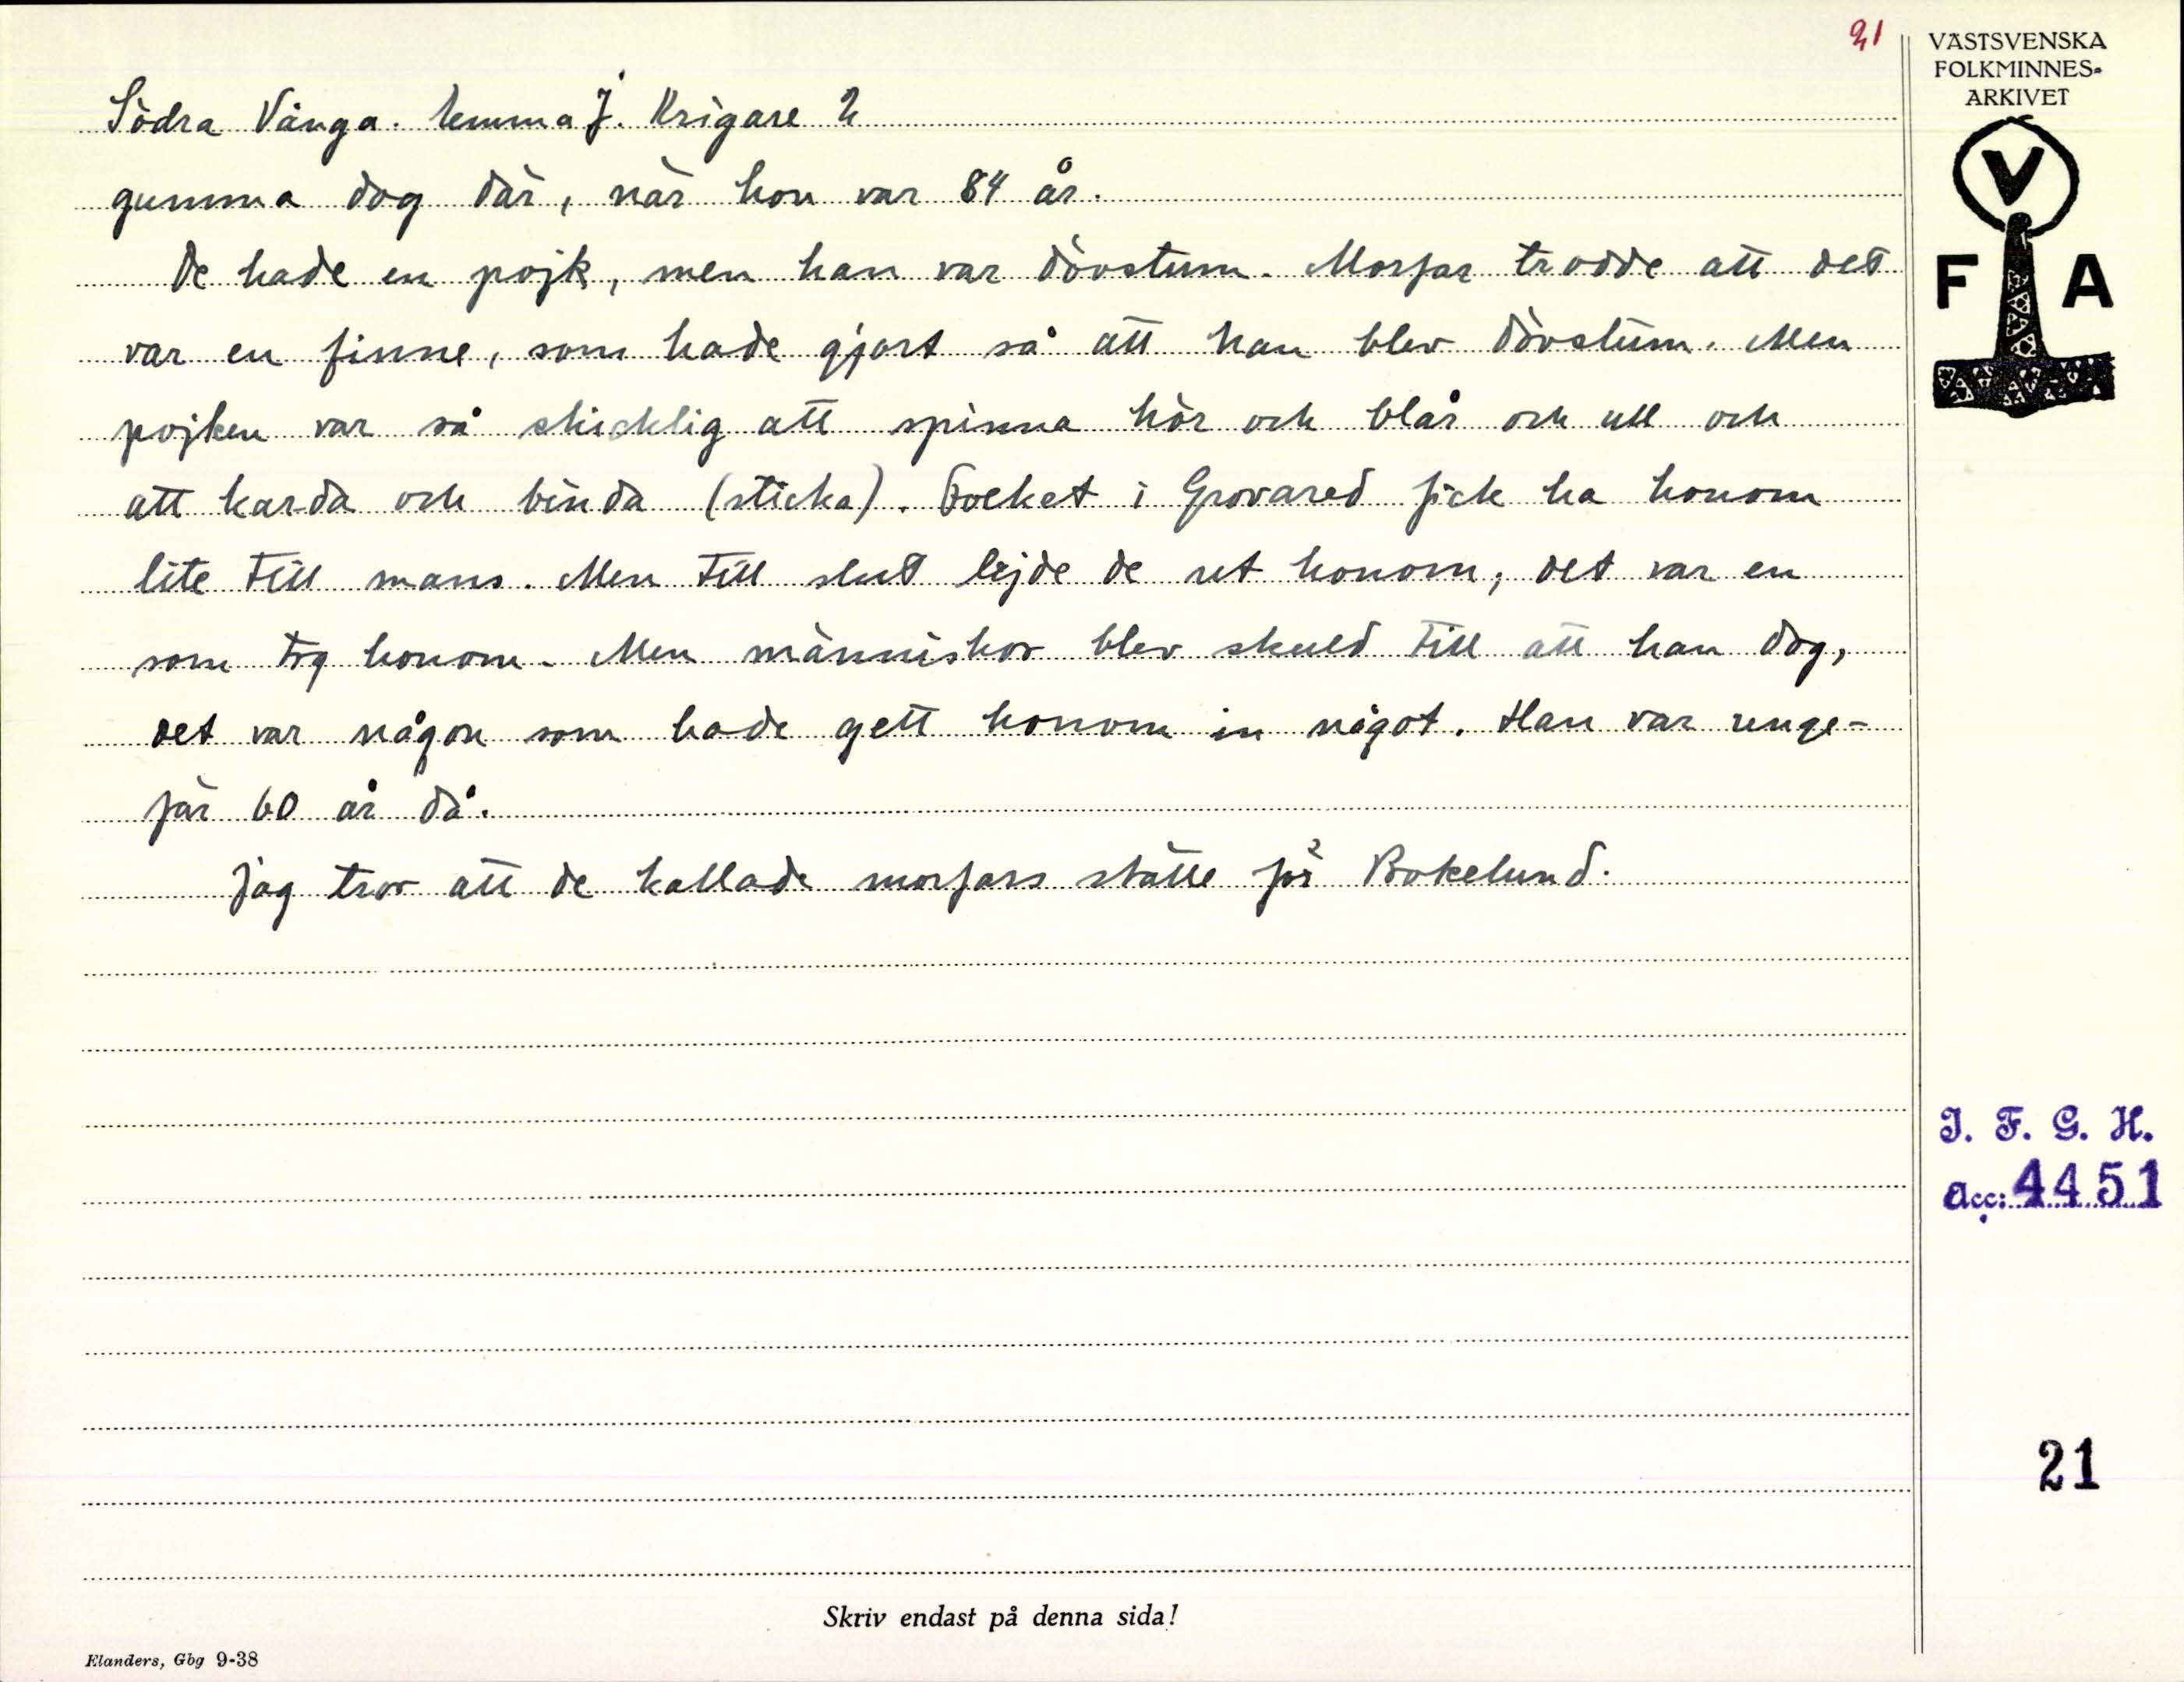 21
VÄSTSVENSKA
FOLKMINNES-
ARKIVET
V
F A
Södra Vånga. Emma J. Krigare 2
gumma dog där, när hon var 84 år.
De hade en pojk, men han var dövstum. Morfar trodde att det
var en finne, som hade gjort så att han blev dövstum. Men
pojken var så skicklig att spinna hör och blår och ull och
att karda och binda (sticka). Socket i Grovared fick ha honom
lite till mans. Men till slut lejde de ut honom, det var en
som tog honom. Men människor blev skuld till att han dog,
det var någon som hade gett honom in något. Han var unge-
fär 60 år då.
Jag tror att de kallade morfars ställe för Bokelund.
I. F. G. H.
Acc: 4451
21
Skriv endast på denna sida!
Elanders, Gbg 9-38